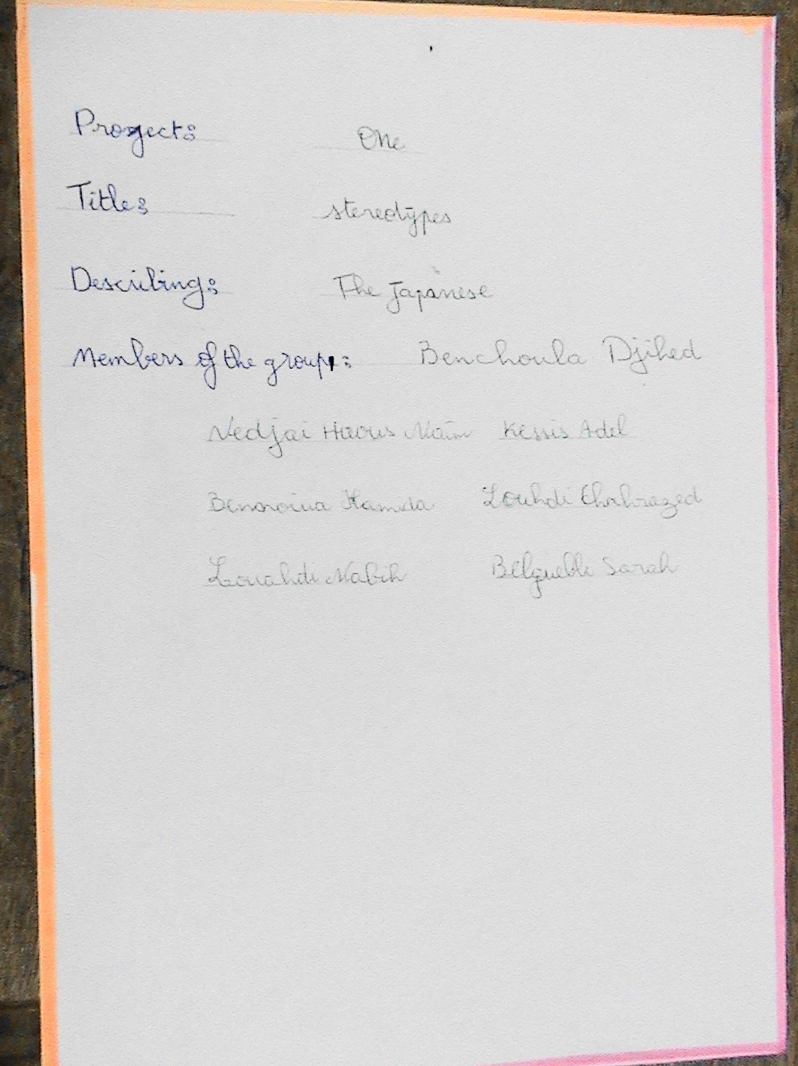 Project: One
Title: stereotypes
Describing: The Japanese
Members of the group: Benchoula Djihed
Nedjai Haous Naim Kessis Adel
Hamda Louhdi Chahrazed
Louahdi Nabih Belguebli Sarah